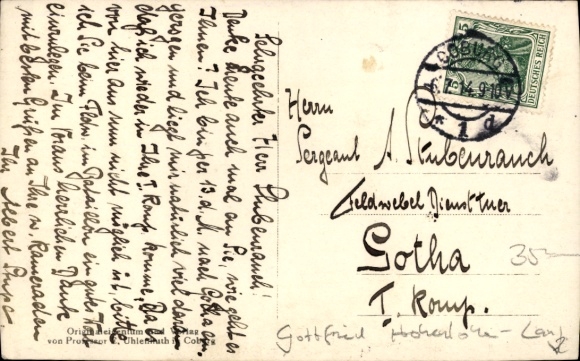 Sehrgeehrter Herr Stubenrauch!
Denke heute auch mal an Sie, wie geht es
Ihnen? Ich bin per 13 d. M. nach Gotha
gezogen und liegt mir natürlich viel daran
daß ich wieder in Ihre 1. Komp. komme. Da es
von hier aus nun nicht möglich ist, bitte
ich Sie beim Herrn im Bataillon ein gutes Wort
einzulegen. Im Voraus herzlichen Danke
mit besten Grüßen an Ihre w. Kameraden
Ihr Albert
Originaleigentum und Verlag
von Professor Uhlenhuth in Coburg
COBURG
14.9-10V
* 1 d
DEUTSCHES REICH
Herrn
Sergeant A. Stubenrauch
Feldwebel Diensttuer
Gotha
1. Komp.
35
Gottfried Hohenlohe - Lan